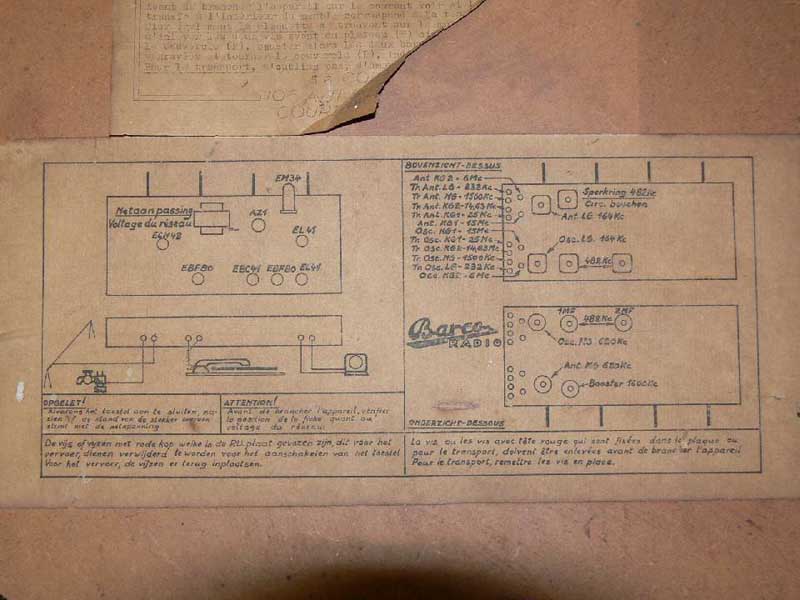 avant de brancher l'appareil sur le courant
transfo à l'intérieur du meuble correspond à la
Pour le transport, n'oubliez pas
EM34
Netaanpassing
Voltage du réseau
AZ1
ECH42
EL41
EBF80 EBC41 EBF80 EL41
BOVENZICHT-DESSUS
Ant KG2 - 6Mc
Tr Ant. LG - 232Kc
Tr Ant. MG - 1500Kc
Tr Ant. KG2 - 14,63Mc
Tr Ant. KG1 - 25Mc
Ant. KG1 - 15Mc
Osc. KG1 - 15Mc
Tr Osc. KG1 - 25Mc
Tr Osc. KG2 - 14,63Mc
Tr Osc. MG - 1500Kc
Tr Osc. LG - 232Kc
Osc. KG2 - 6Mc
Sperkring 482Kc
Circ. bouchon
Ant. LG 164Kc
Osc. LG. 164Kc
482Kc
Barco
RADIO
1MF 2MF
482Kc
Osc. MG 620Kc
Ant. MG 620Kc
Booster 1600Kc
ONDERZICHT-DESSOUS
OPGELET!
Alvorens het toestel aan te sluiten, na-
zien of de stand van de stekker overeen
stemt met de netspanning
ATTENTION!
Avant de brancher l'appareil, vérifier
la position de la fiche quant au
voltage du réseau
De vijs of vijzen met rode kop welke in de P.U. plaat gevezen zijn, dit voor het
vervoer, dienen verwijderd te worden voor het aanschakelen van het toestel
Voor het vervoer, de vijzen er terug inplaatsen.
La vis ou les vis avec tête rouge qui sont fixées dans la plaque
pour le transport, doivent être enlevées avant de brancher l'appareil
Pour le transport, remettre les vis en place.